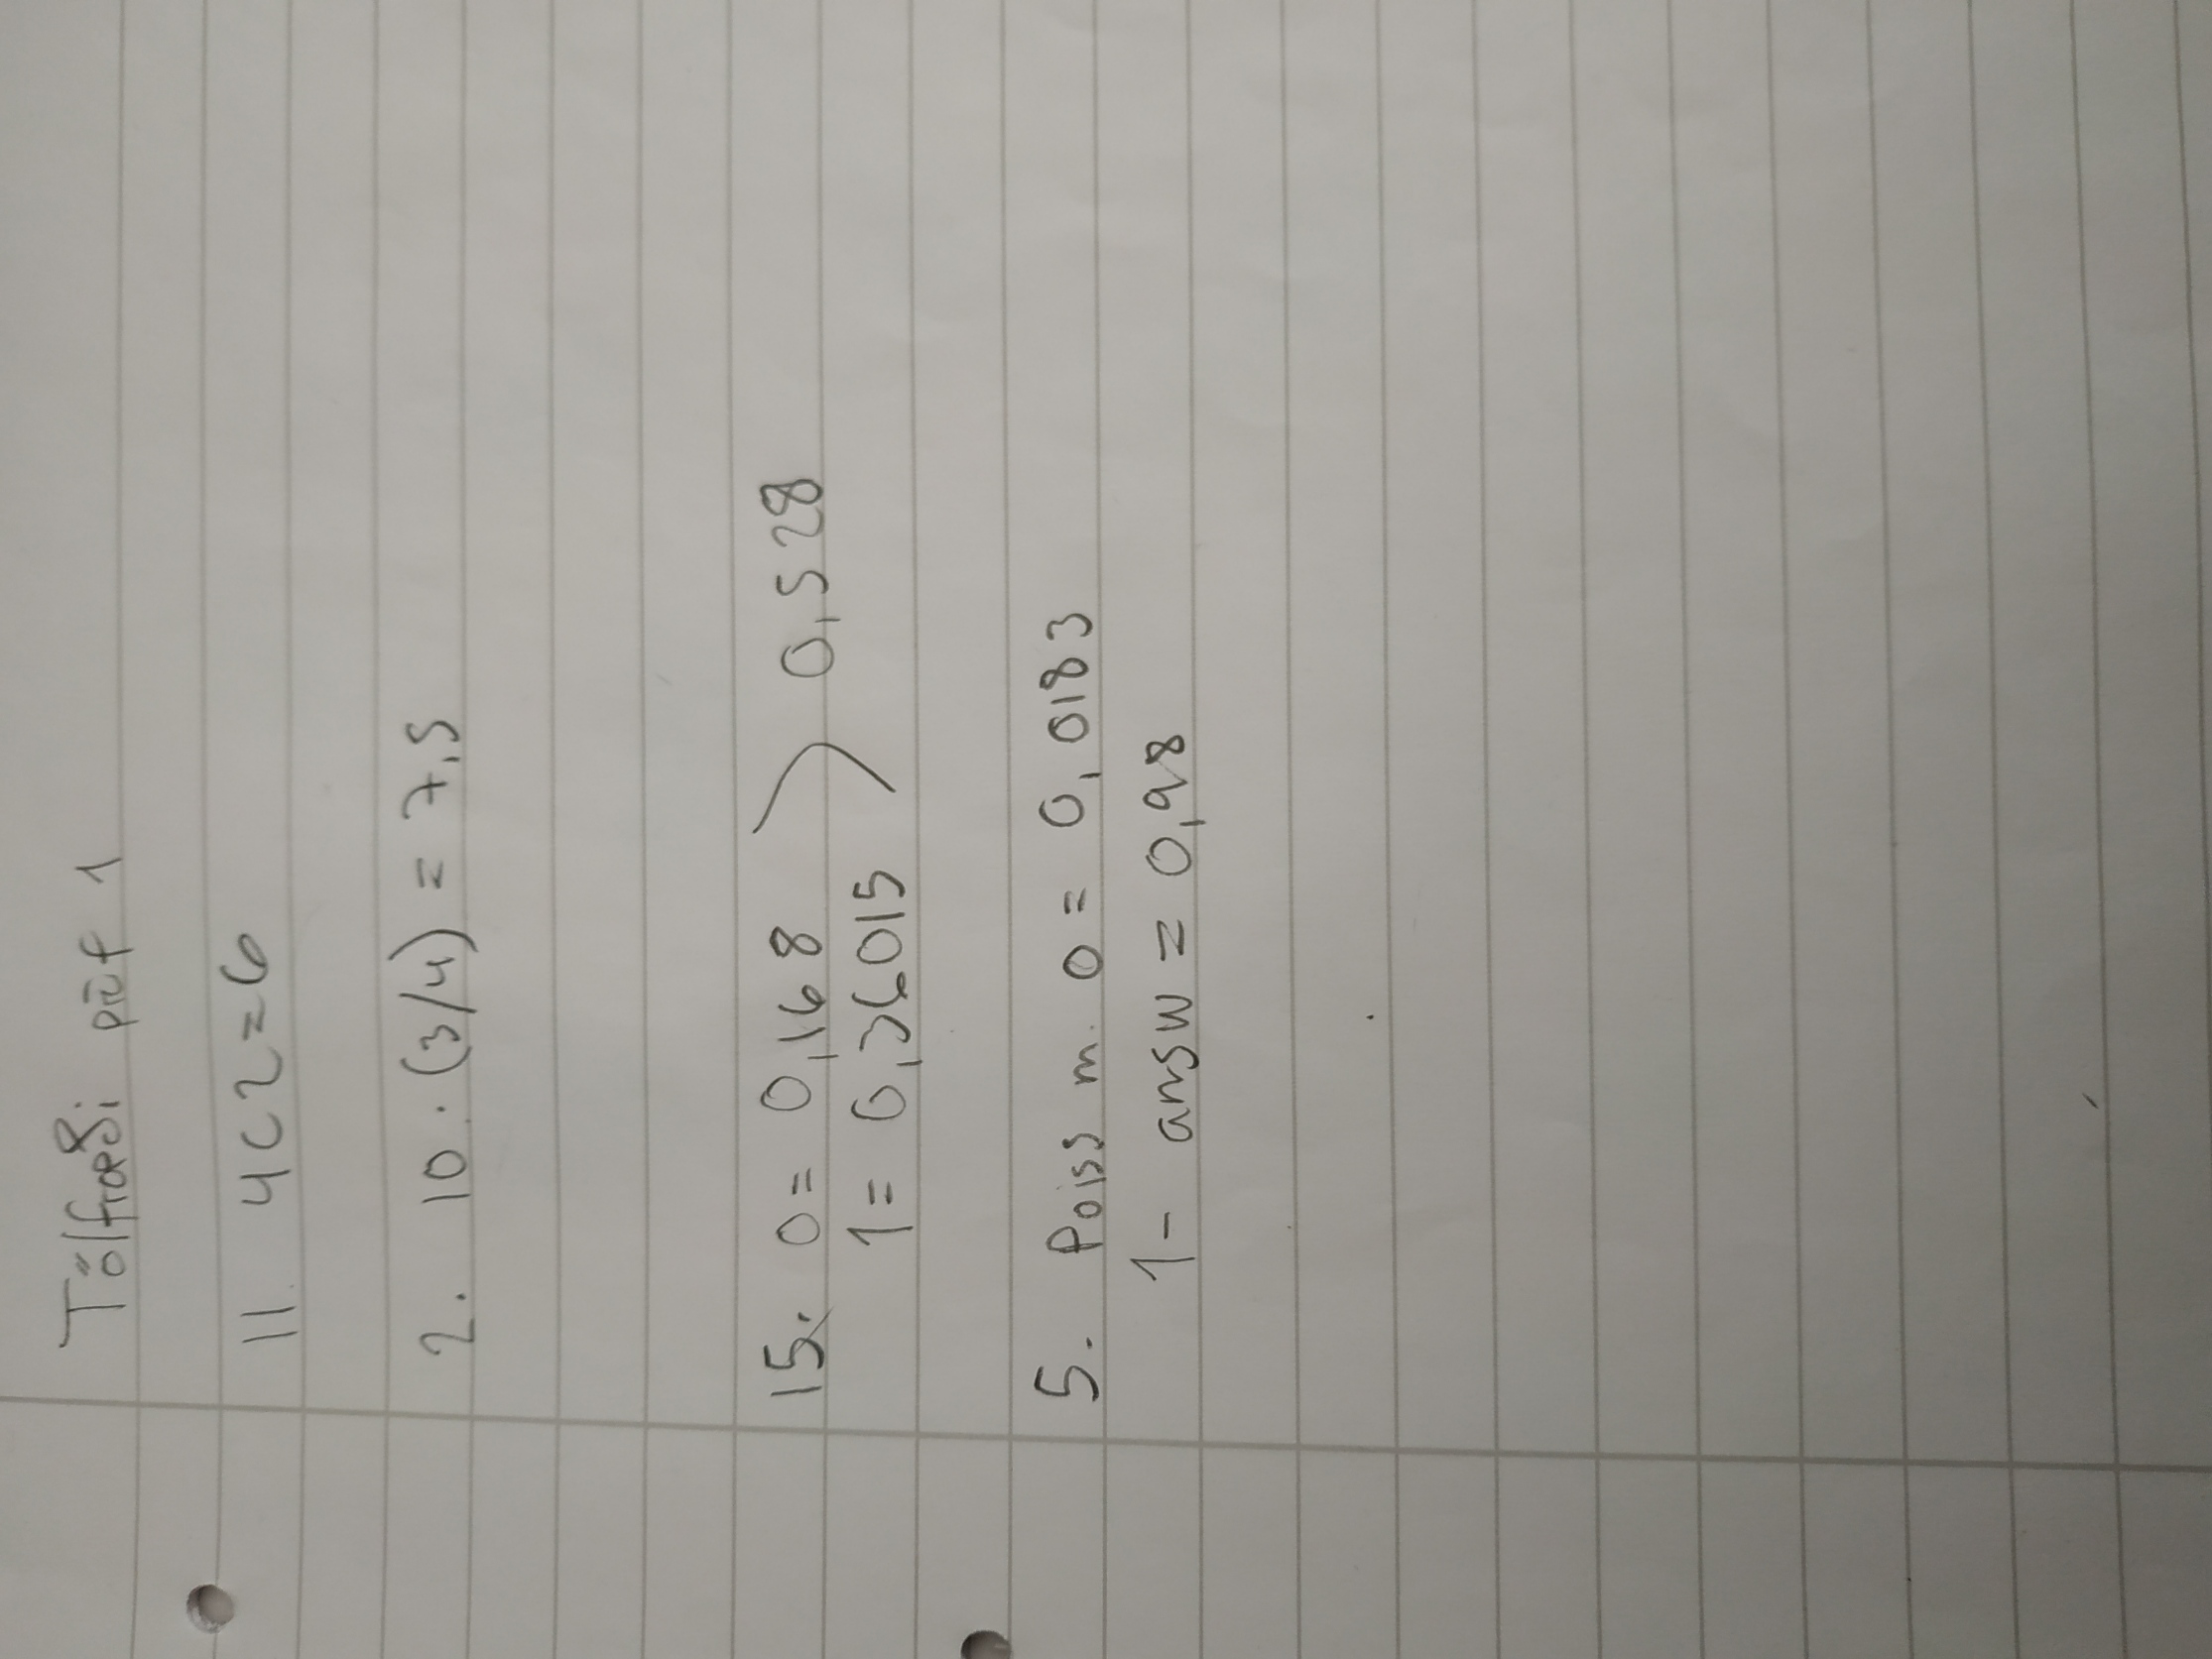 Tölfræði próf 1
11. 4C2=6
2. 10 · (3/4) = 7,5
15. 0 = 0,168 > 0,528
1 = 0,36015
5. Poiss m. 0 = 0,0183
1 - answ = 0,98